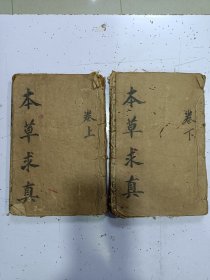 本草求真
卷上
本草求真
卷下